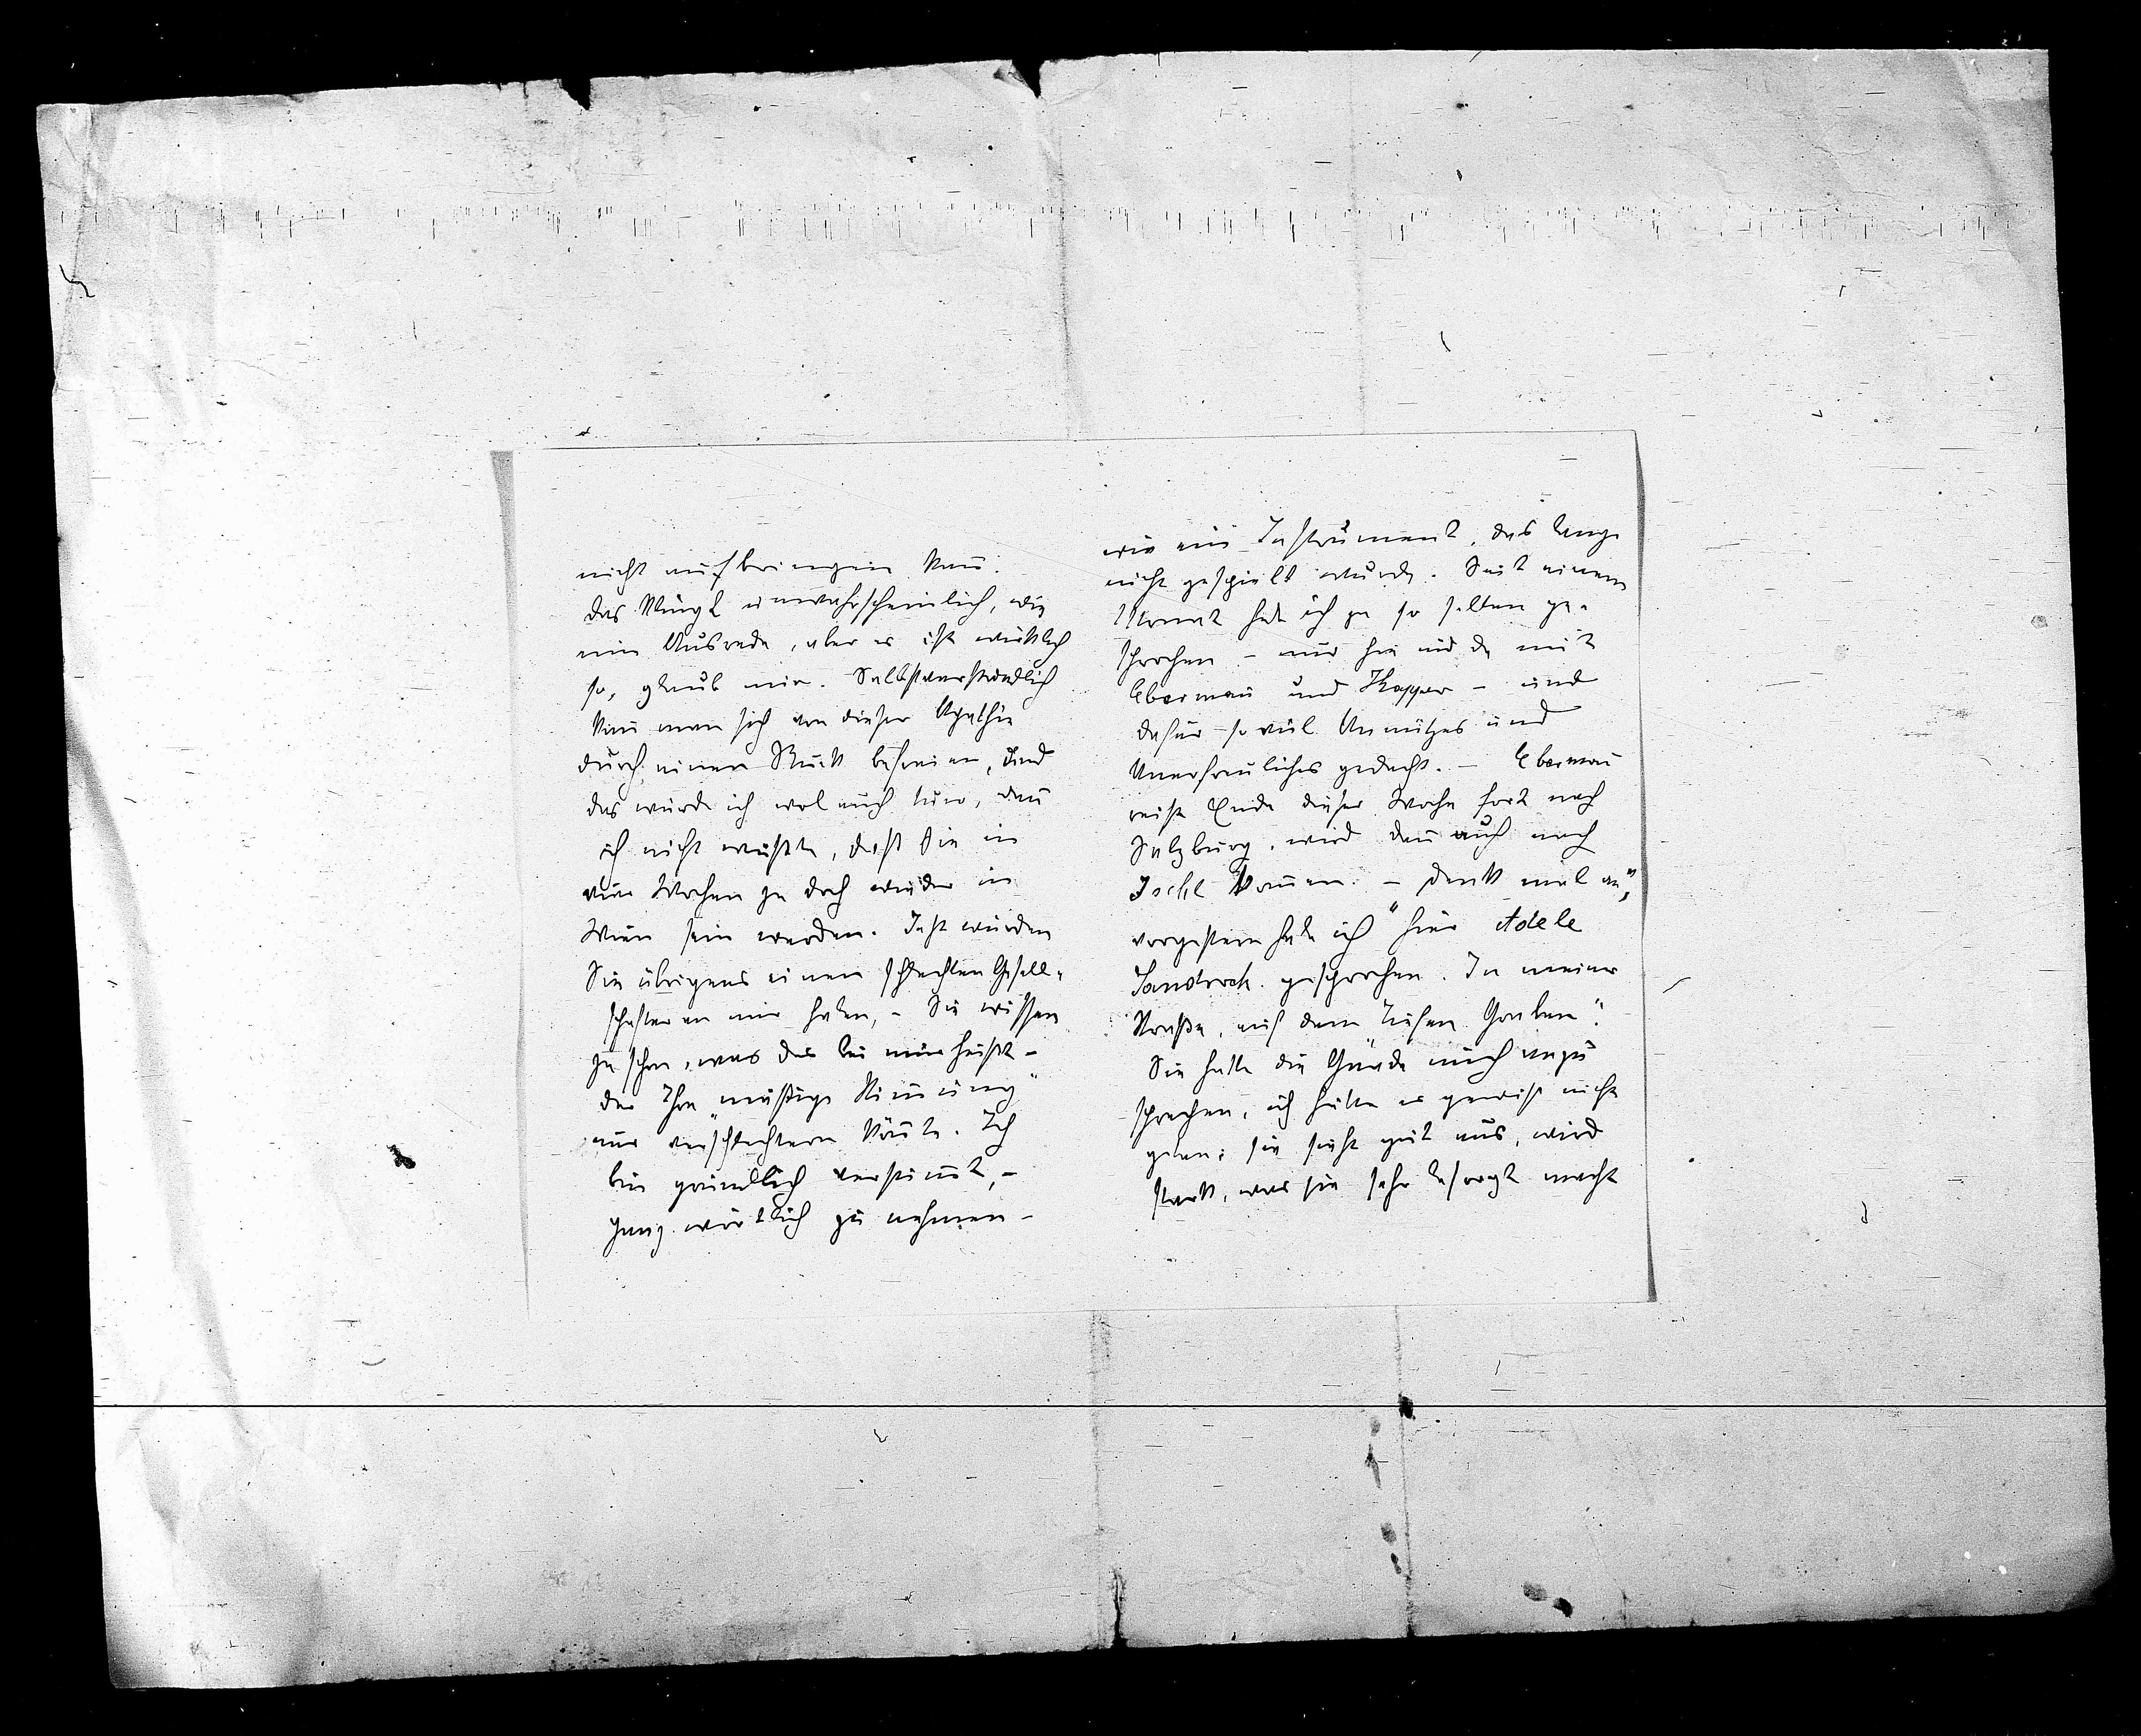 nicht aufbringen kan̄.
das klingt unwahrscheinlich, wie
eine Ausrede, aber es ist wirklich
so, glaub mir. Selbstverständlich
kan̄ man sich von dieser Apathie
durch einen Ruck befreien, und
das würde ich wol auch tun, wen̄
ich nicht wüßte, daß Sie in
vier Wochen ja doch wieder in
Wien sein werden. Jetzt würden
Sie übrigens einen schlechten Gesell-
schafter an mir haben, – Sie wissen
ja schon, was das bei mir heißt –
der Ihre „mäßige Stim̄ung“
nur verschlechtern kön̄te. Ich
bin gründlich verstim̄t, –
ganz wörtlich zu nehmen –
wie ein Instrument, das lange
nicht gespielt wurde. Seit einem
Monat hab ich ja so selten ge-
sprochen – nur hie und da mit
Eberman̄ und Kapper – und
dafür so viel Unnützes und
Unerfreuliches gedacht. – Eberman̄
reist Ende dieser Woche fort nach
Salzburg, wird dan̄ auch nach
Ischl kom̄en. – Denk mal an,
vorgestern habe ich „hier Adele
Sandrock gesprochen. In meiner
Straße, auf dem tiefen Graben“.
Sie hatte die Gnade mich anzu
sprechen, ich hätte es gewiß nicht
getan; sie sieht gut aus, wird
stark, was sie sehr besorgt macht